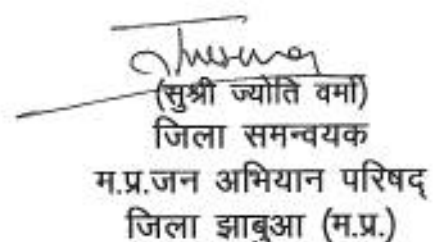 (सुश्री ज्योति वर्मा)
जिला समन्वयक
म.प्र.जन अभियान परिषद्
जिला झाबुआ (म.प्र.)